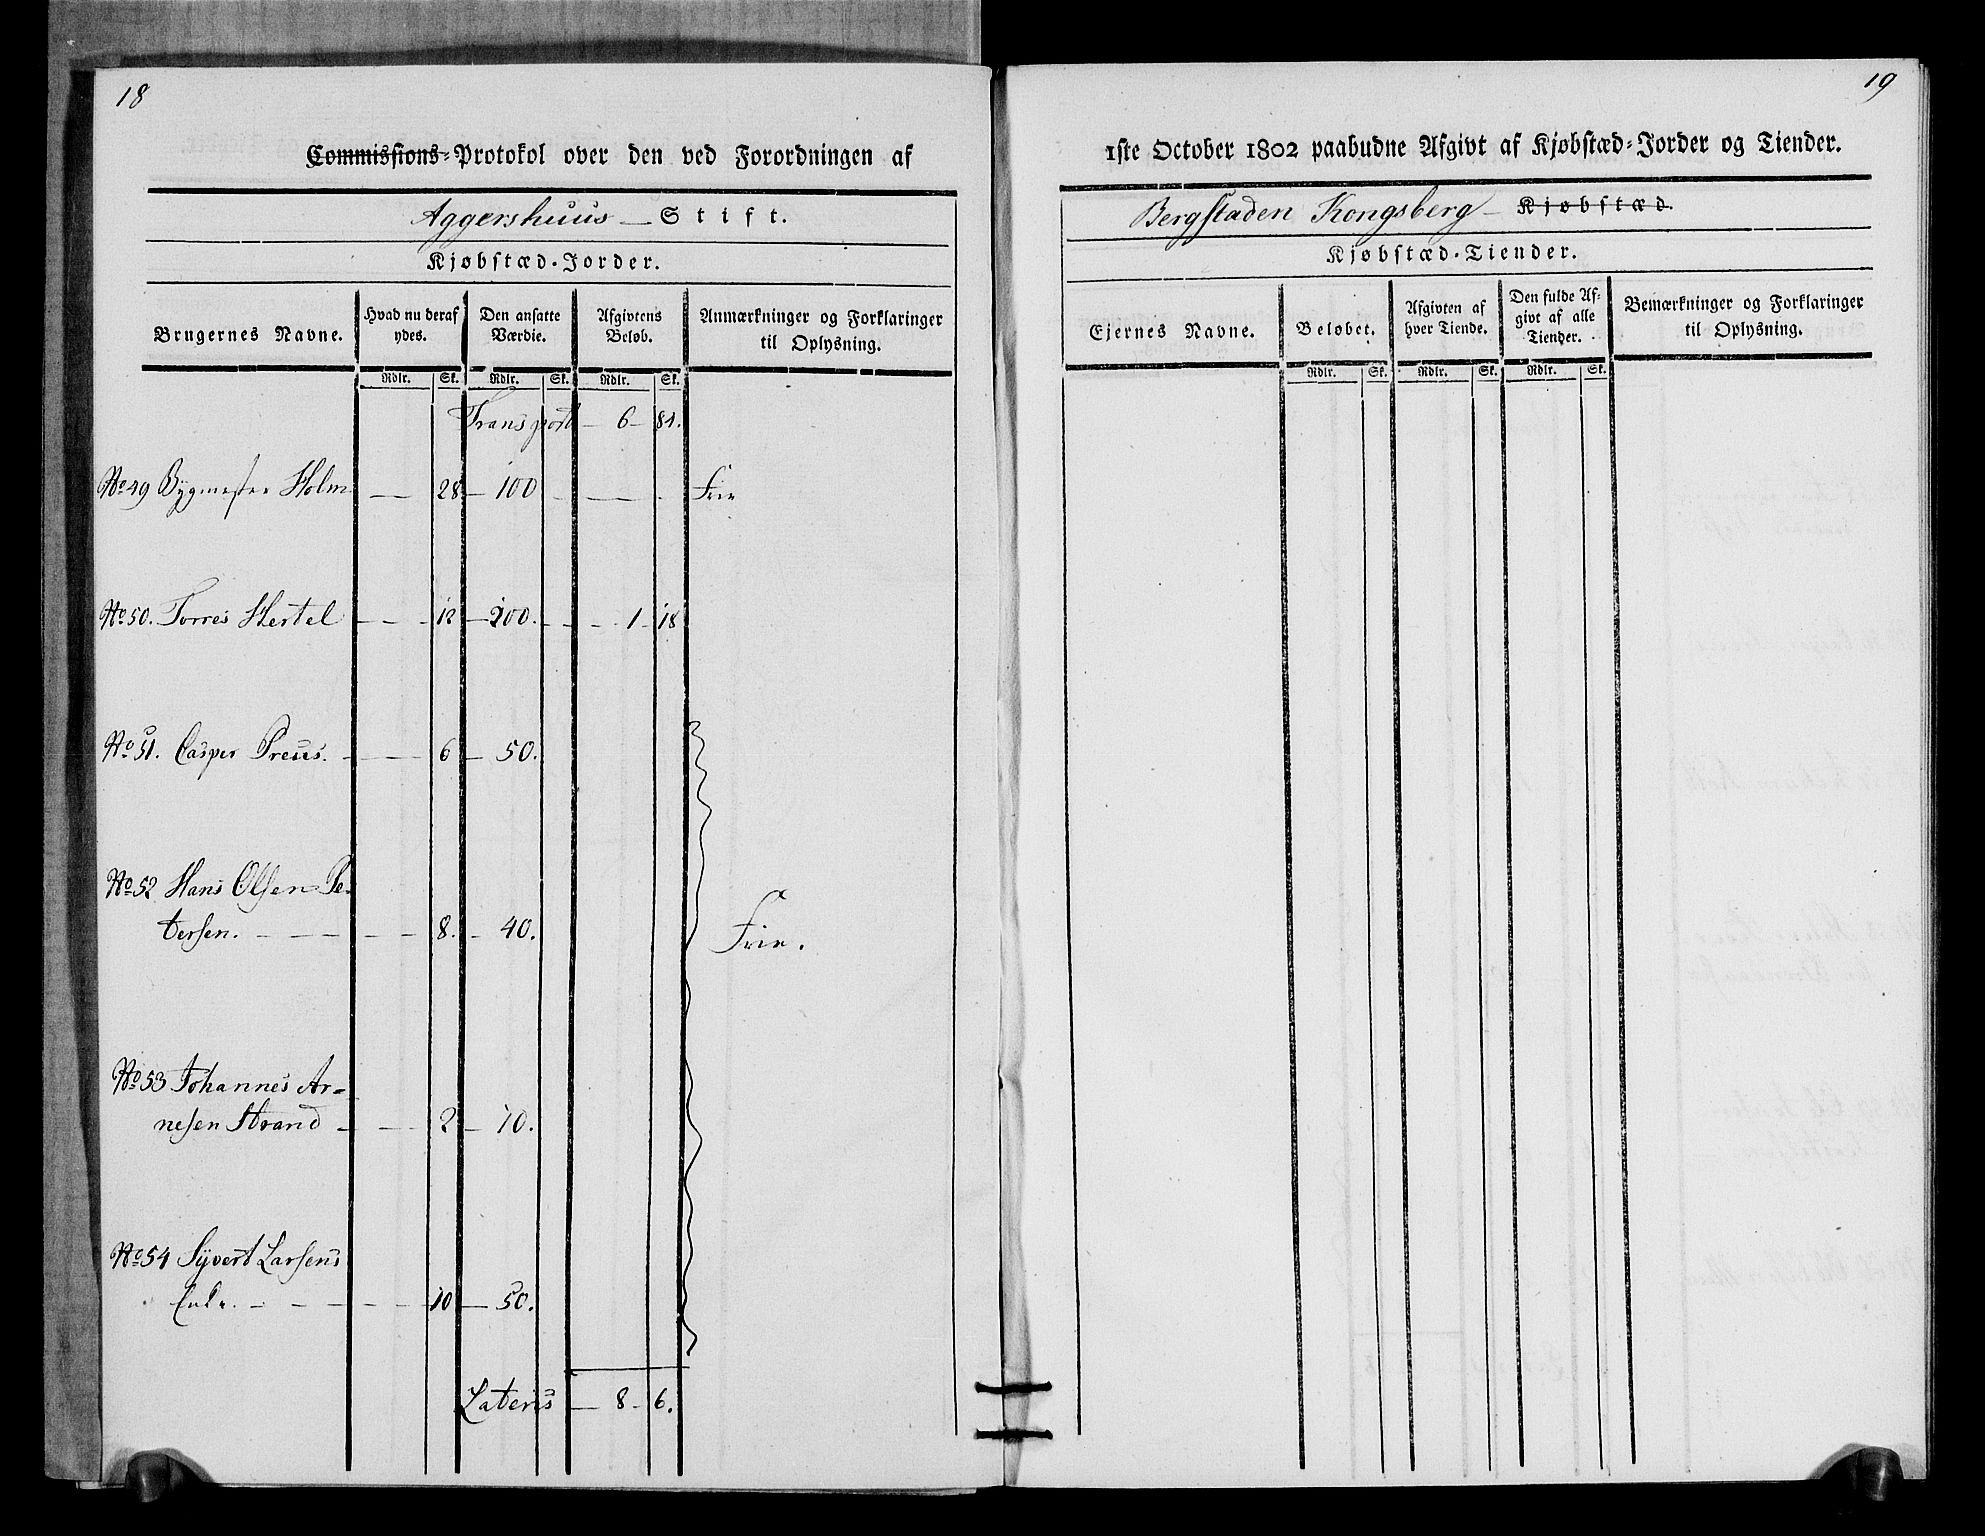 18
Commissions-Protokol over den ved Forordningen af
Aggershuus — Stift.
Kjøbstæd-Jorder.
Brugernes Navne.
Hvad nu deraf
ydes.
Den ansatte
Værdie.
Afgivtens
Beløb.
Anmærkninger og Forklaringer
til Oplysning.
Rdlr. Sk. Rdlr. Sk. Rdlr. Sk.
Transport — 6 — 84.
No 49 Bygmester Holm — 28 — 100 — — . Frie
No 50. Torres Hertel — — 12 — 200. — — 1 — 18
No 51. Casper Preus. — — 6 — 50.
No 52 Hans Olsen Pe-
tersen. — — — 8. — 40. Frie.
No 53 Johannes Ar-
nesen Strand — — 2 — 10.
No 54 Syvert Larsens
Enke. — — — 10 — 50.
Lateris — 8 — 6.
19
1ste October 1802 paabudne Afgivt af Kjøbstæd-Jorder og Tiender.
Bergstaden Kongsberg — Kjøbstæd.
Kjøbstæd-Tiender.
Ejernes Navne.
Beløbet.
Afgivten af
hver Tiende.
Den fulde Af-
givt af alle
Tiender.
Bemærkninger og Forklaringer
til Oplysning.
Rdlr. Sk. Rdlr. Sk. Rdlr. Sk.